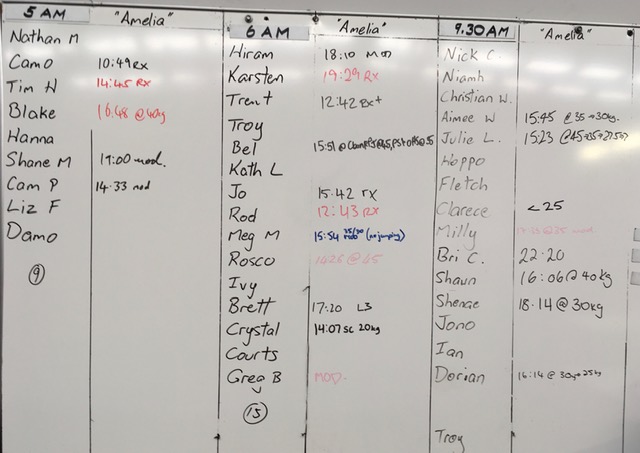 5 AM "Amelia"
Nathan M
Camo 10:49 RX
Tim H 14:45 RX
Blake 16:48 @ 40kg
Hanna
Shane M 19:00 mod.
Cam P 14:33 mod
Liz F
Damo
9
6 AM "Amelia"
Hiram 18:10 MOD
Karsten 19:29 RX
Trent 12:42 Rx+
Troy
Bel 15:51 @
Kath L
Jo 15:42 rx
Rod 12:43 RX
Meg M 15:54 (no jumping)
Rosco 14:26 @ 45
Ivy
Brett 17:20 L3
Crystal 14:07 sc 20kg
Courts
Greg B MOD.
15
9.30AM "Amelia"
Nick C.
Niamh
Christian W.
Aimee W 15:45 @ 35→30kg.
Julie L. 15:23 @45→35→27.5
Hoppo
Fletch
Clarece <25
Milly
Bri C. 22:20
Shaun 16:06 @ 40kg
Shenae 18:14 @ 30kg
Jono
Ian
Dorian 16:14 @
Troy